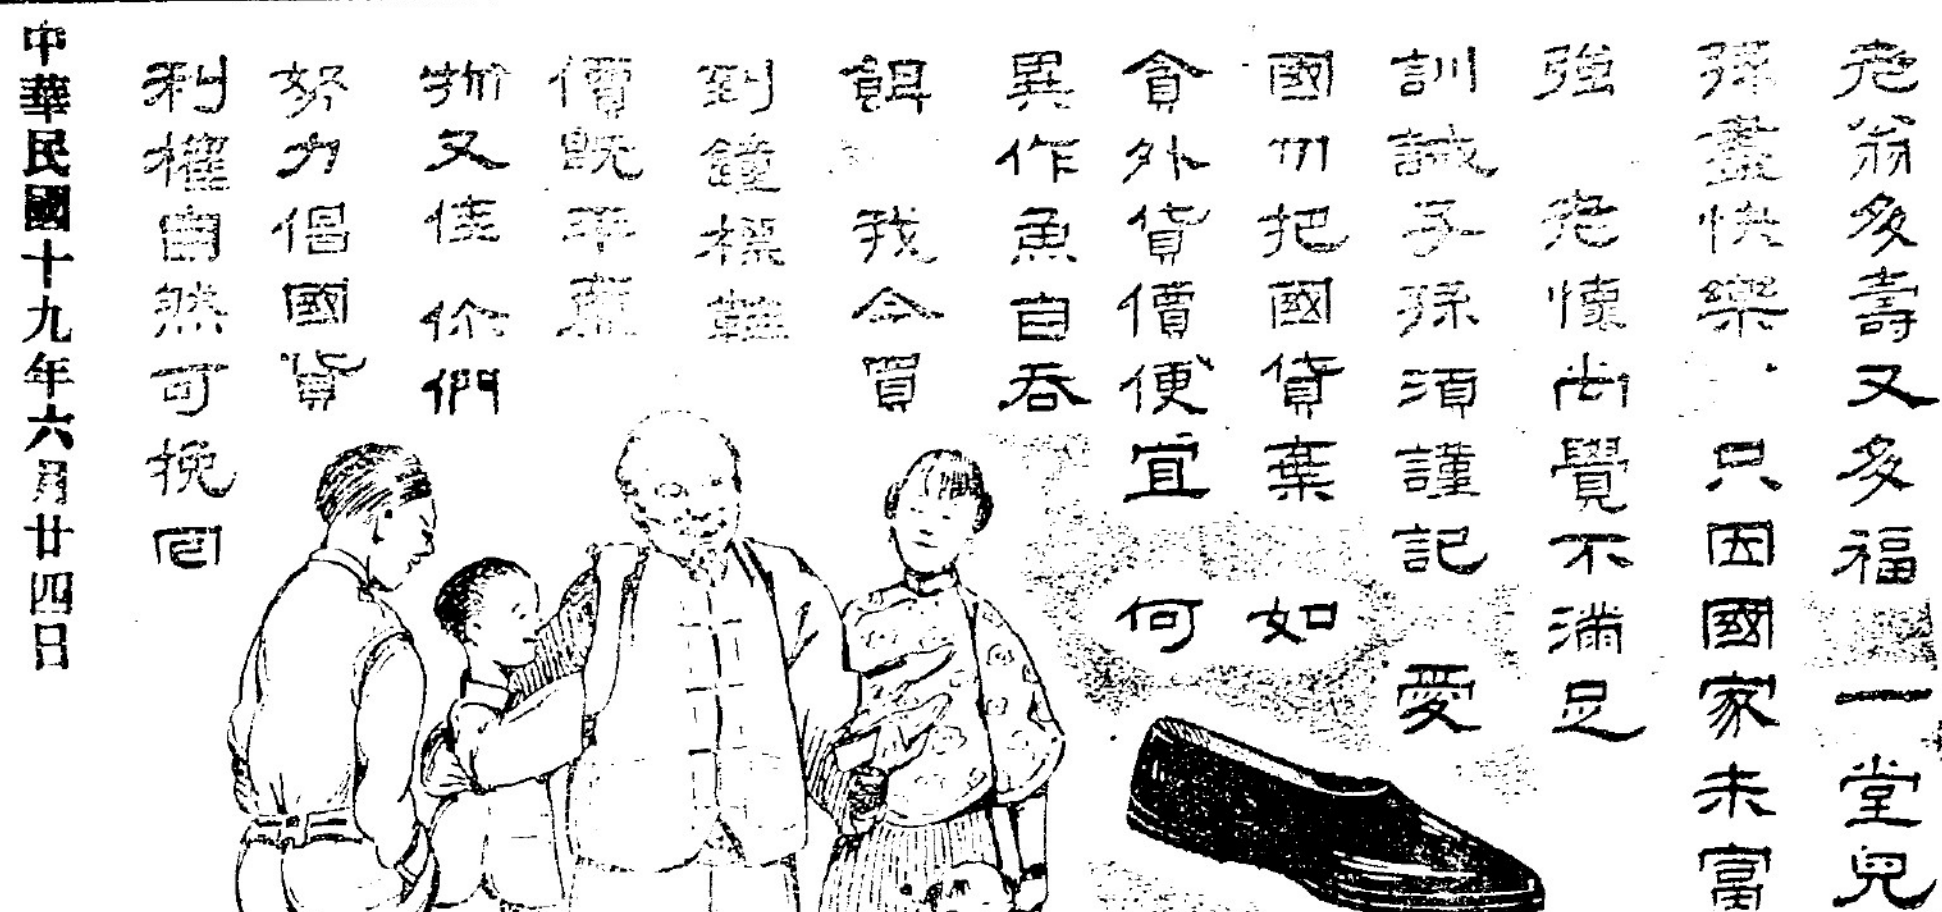 老翁多壽又多福 一堂兒
孫盡快樂 只因國家未富
強 老懷尚覺不滿足
訓誡子孫須謹記 愛
國勿把國貨棄 如
貪外貨價便宜 何
異作魚自吞
餌 我今買
到鐘標鞋
價既平廉
物又佳 你們
努力倡國貨
利權自然可挽回
中華民國十九年六月廿四日